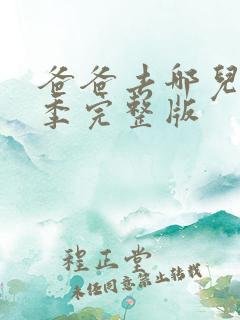 爸爸去哪兒
季完整版
程正堂
未经同意禁止转载